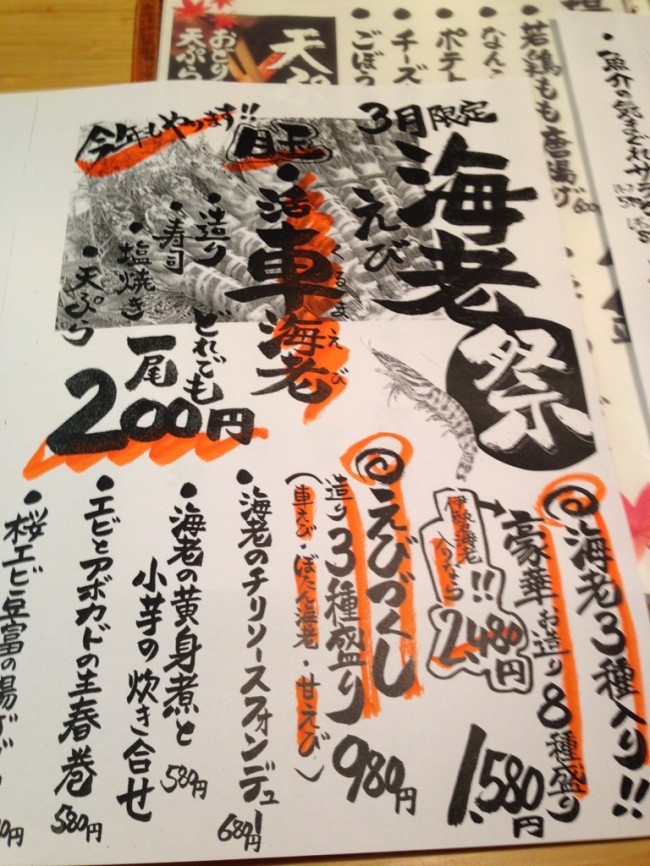 3月限定
海老祭
えび
今年もやります!!
・活車海老
くるまえび
・造り
・寿司
・塩焼き
・天ぷら
どれでも
一尾
200円
海老3種入り!!
豪華お造り8種盛り
1,580円
伊勢海老
入りなら
!!
2,480円
えびづくし
造り3種盛り
(車えび・ぼたん海老・甘えび)
980円
・海老のチリソースフォンデュ
680円
・海老の黄身煮と
小芋の炊き合せ
580円
・エビとアボカドの生春巻
580円
・桜エビ豆富の揚げ
天ぷら
おどり
・ごぼう
・チーズ
・ポテト
・なんこ
・若鶏もも唐揚げ
・魚介の気まぐれサラダ